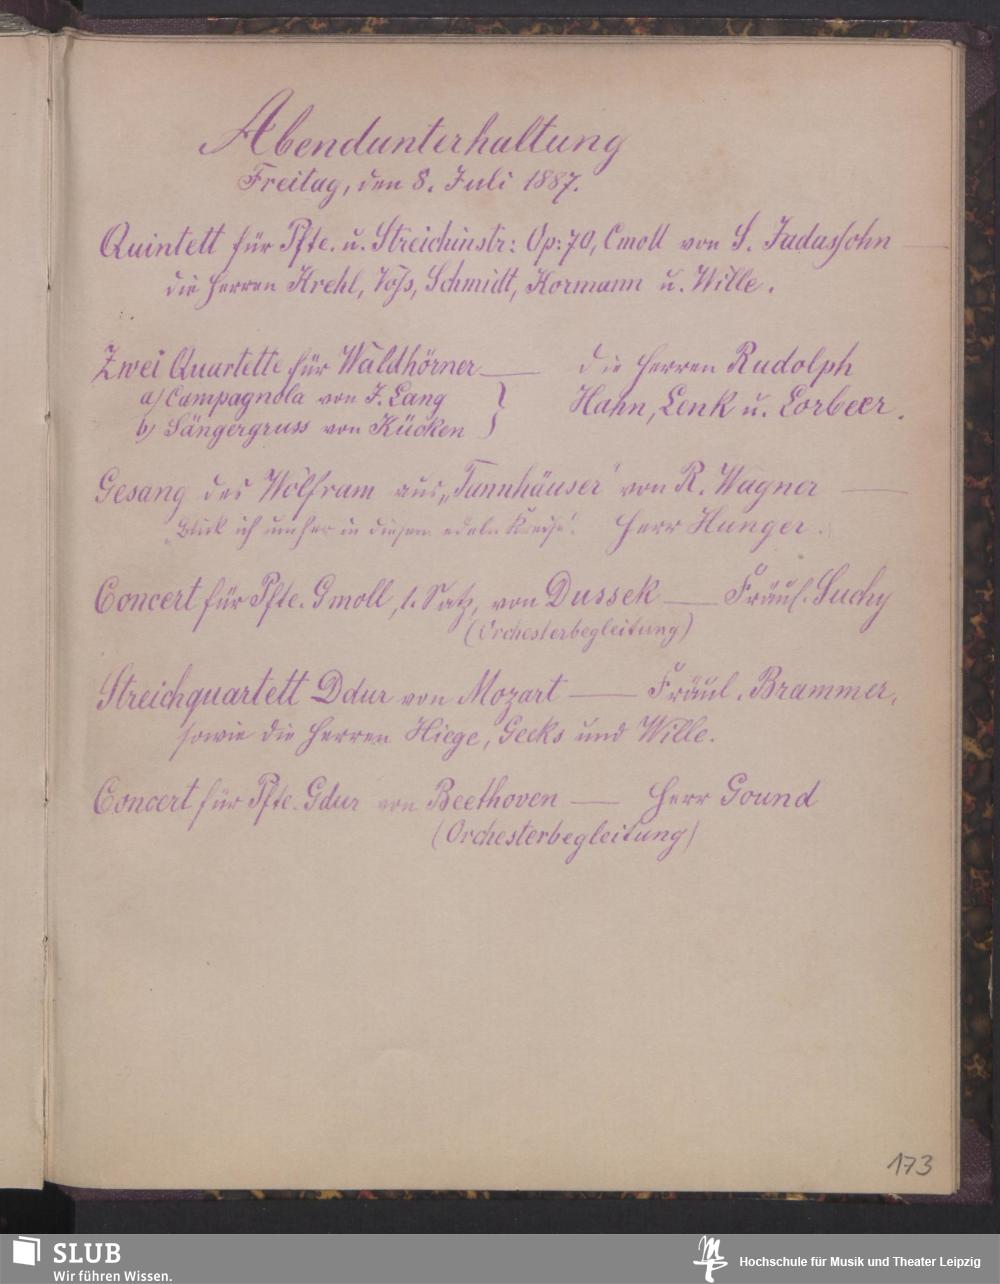 Abendunterhaltung
Freitag, den 8. Juli 1887.
Quintett für Pfte. u. Streichinstr: Op: 70, Cmoll von S. Jadassohn —
die Herren Krehl, Voss, Schmidt, Kormann u. Wille.
Zwei Quartette für Waldhörner — die Herren Rudolph
a) Campagnola von J. Lang } Hahn, Lenk u. Lorbeer.
b) Sängergruss von Kücken
Gesang des Wolfram aus „Tannhäuser" von R. Wagner —
„Blick ich umher in diesem edeln Kreise". Herr Hunger.
Concert für Pfte. Gmoll, 1. Satz, von Dussek — Fräul. Suchy
(Orchesterbegleitung)
Streichquartett Ddur von Mozart — Fräul. Brammer,
sowie die Herren Hiege, Geeks und Wille.
Concert für Pfte. Gdur von Beethoven — Herr Gound
(Orchesterbegleitung)
173
SLUB
Wir führen Wissen.
Hochschule für Musik und Theater Leipzig